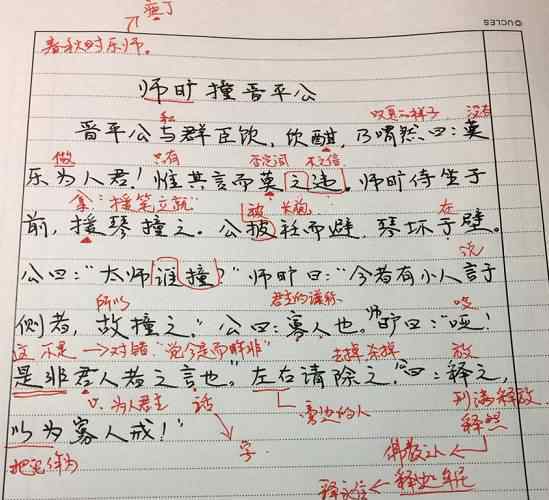 瞎了
©UCLES
春秋时乐师。
师旷撞晋平公
和 叹息的样子 没有
晋平公与群臣饮,饮酣,乃喟然曰:莫
做 只有 否定词
乐为人君!惟其言而莫之违。师旷侍坐于
拿:援笔立就 被
前,援琴撞之。公披衽而避,琴坏于壁。
公曰:"太师谁撞?"师旷曰:"今者有小人言于
所以 君主的谦称
侧者,故撞之。"公曰:寡人也。"师旷曰:"哑!
这 不是 → 对错:"觉今是而昨非" 去掉 杀掉 放
是非君人者之言也。"左右请除之,"曰:释之,
v. 为人君主 话 旁边的人 刑满释放
以为寡人戒!"
释然
把它作为 字 佛教